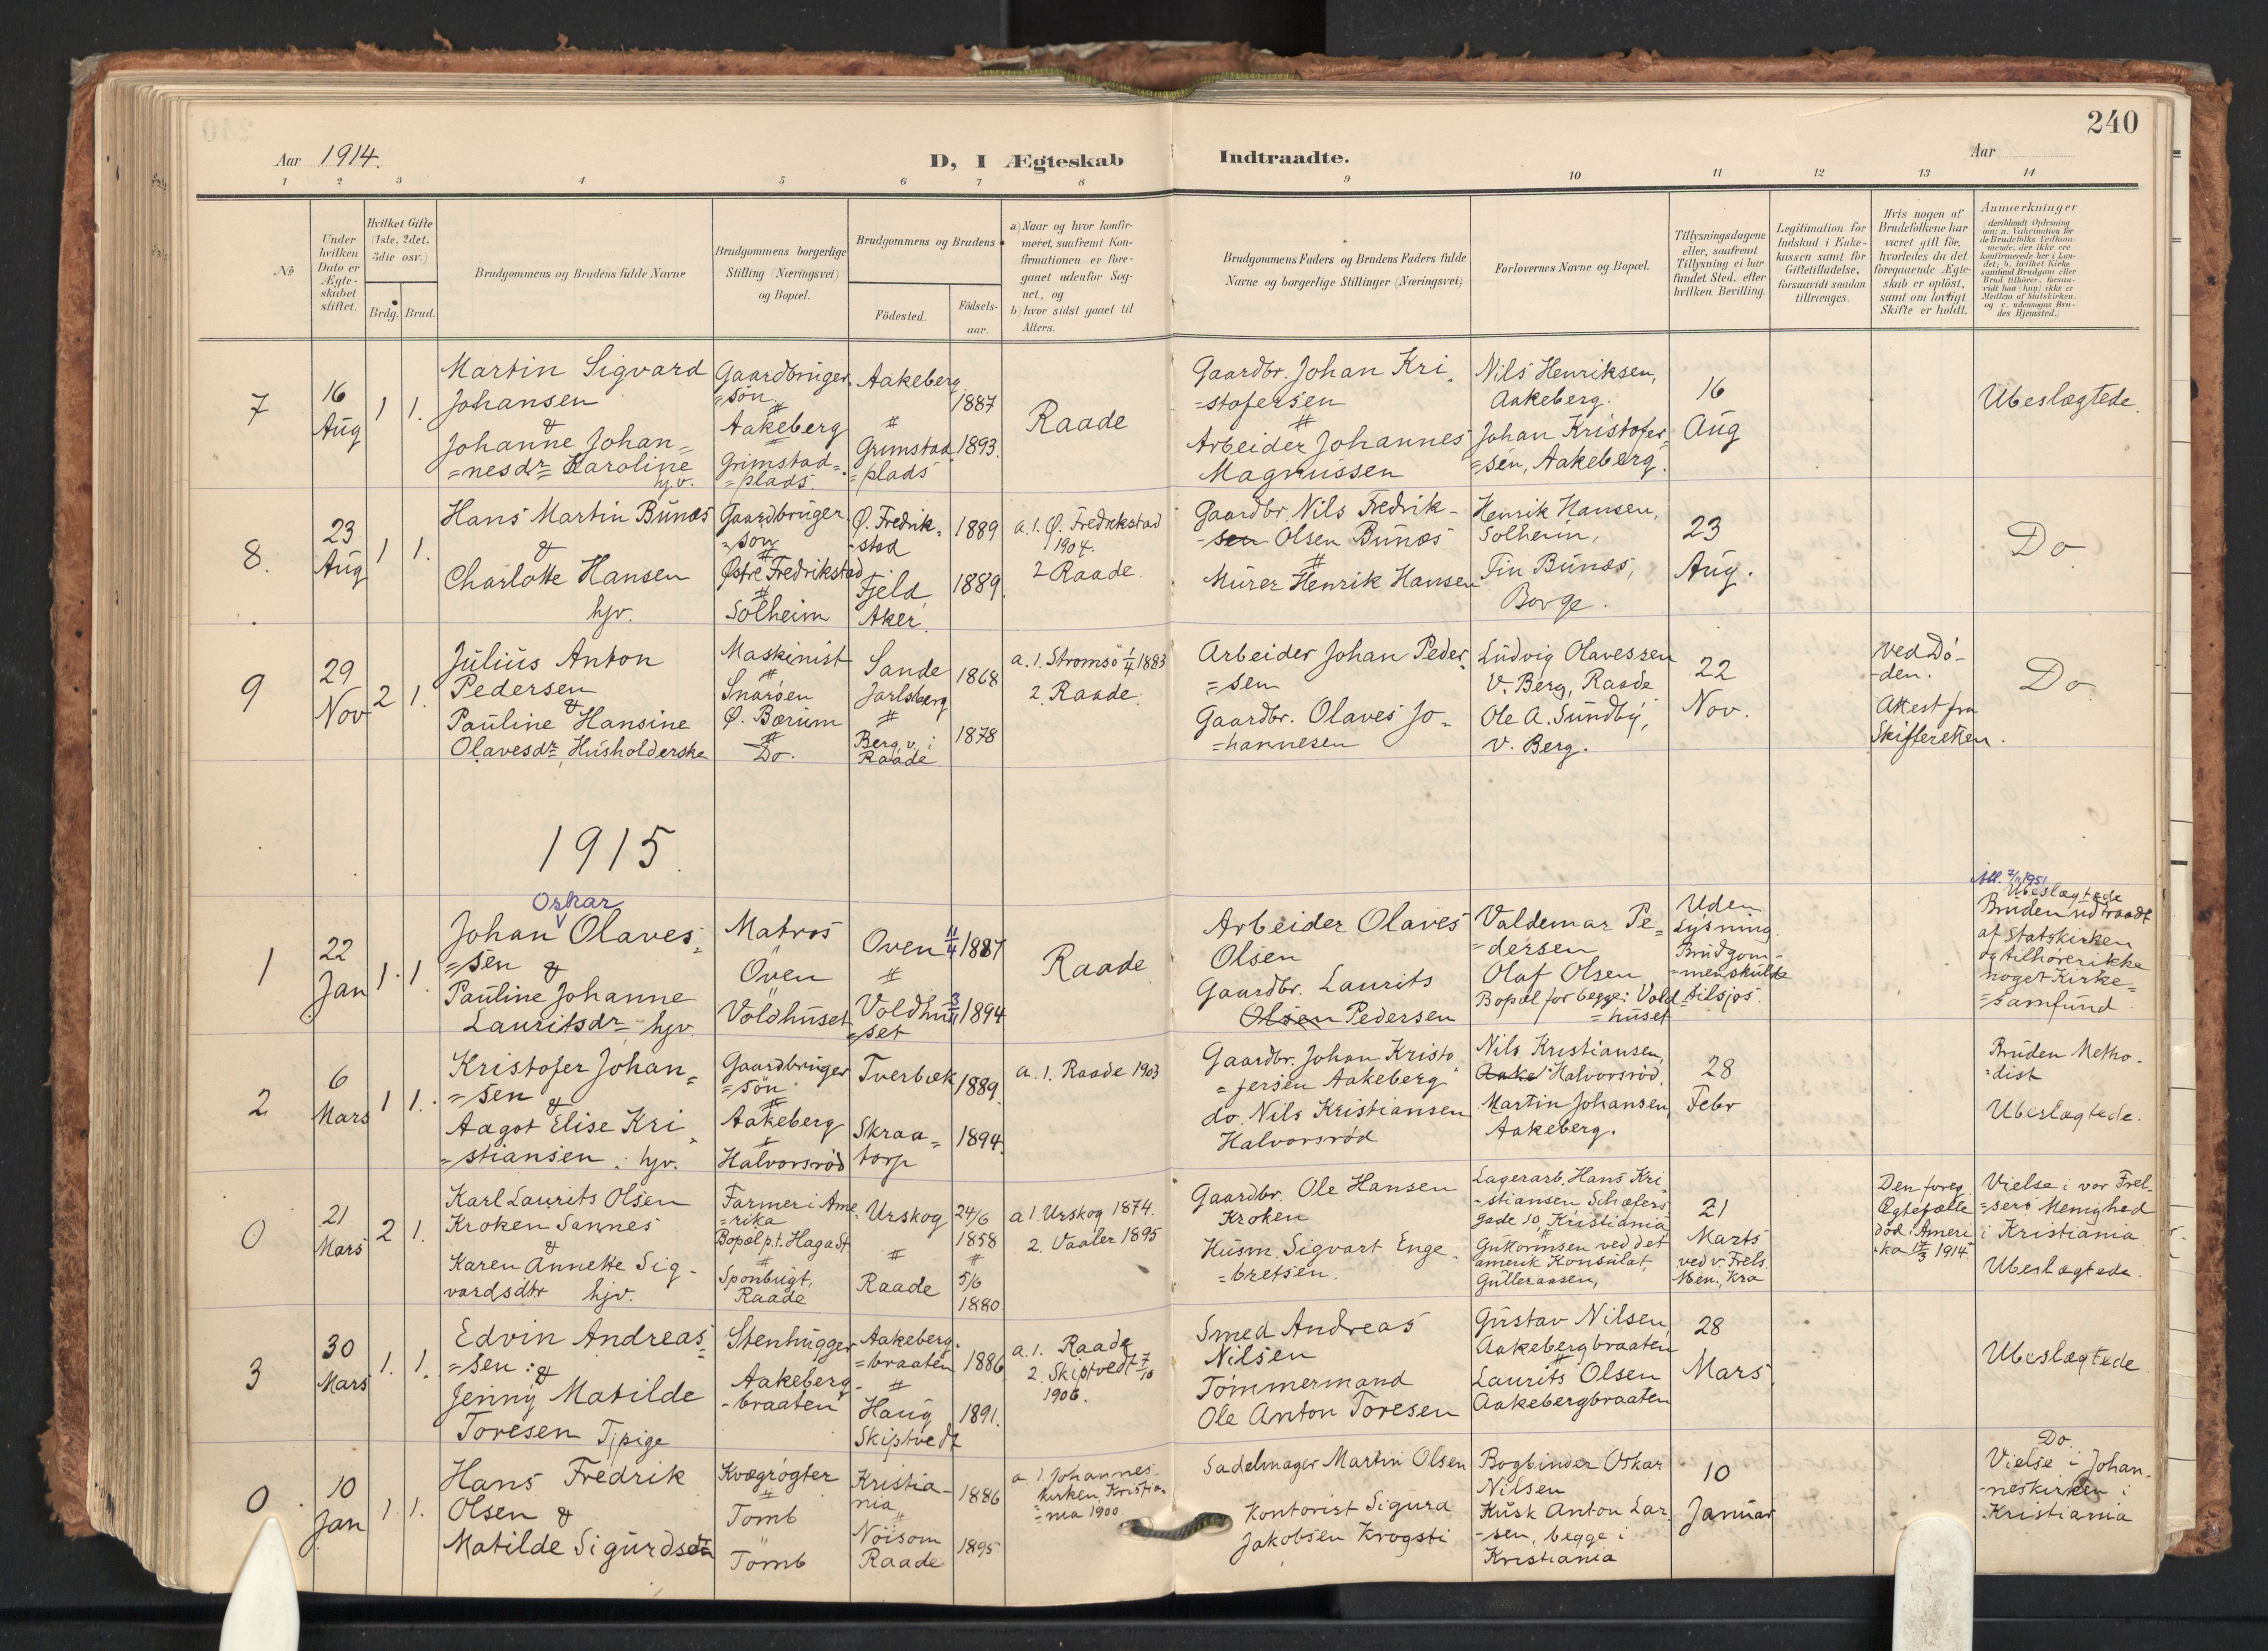 240
Aar 1914.
D, I Ægteskab Indtraadte.
Aar
1 2 3 4 5 6 7 8 9 10 11 12 13 14
No
Under hvilken Dato er Ægteskabet stiftet.
Hvilket Gifte (1ste, 2det, 3die osv.)
Brdg. Brud.
Brudgommens og Brudens fulde Navne
Brudgommens borgerlige Stilling (Næringsvei) og Bopæl.
Brudgommens og Brudens
Födested.
Födselsaar.
a) Naar og hvor konfirmeret, saafremt Konfirmationen er foregaaet udenfor Sognet, og
b) hvor sidst gaaet til Alters.
Brudgommens Faders og Brudens Faders fulde Navne og borgerlige Stillinger (Næringsvei)
Forlovernes Navne og Bopæl.
Tillysningsdagene eller, saafremt Tillysning ei har fundet Sted, efter hvilken Bevilling.
Legitimation for Indskud i Enkekassen samt for Giftetilladelse, forsaavidt saadan tiltrænges.
Hvis nogen af Brudefolkene har været gift för, hvorledes da det foregaaende Ægteskab er oplöst, samt om lovligt Skifte er holdt.
Anmærkninger
(deriblandt Oplysning om: a. Vakcination for de Brudefolks Vedkommende, der ikke ere konfirmerede her i Landet; b. hvilket Kirkesamfund Brudgom eller Brud tilhörer, forsaavidt han (hun) ikke er Medlem af Statskirken, og c. udensogns Brudes Hjemsted.)
7
16
Aug
1 1.
Martin Sigvard
Johansen
&
Johanne Johan=
=nesdr Karoline
hjv.
Gaardbruger
=sön.
Aakeberg
Grimstad=
=plads.
Aakeberg
1887
Grimstad
=plads
1893.
Raade
Gaardbr. Johan Kri=
=stofersen
Arbeider Johannes
Magnussen
Nils Henriksen,
Aakeberg.
Johan Kristofer=
=sen, Aakeberg.
16
Aug
Ubeslægtede.
8.
23
Aug
1 1.
Hans Martin Bunæs
&
Charlotte Hansen
hjv.
Gaardbruger
=sön
Østre Fredrikstad
Solheim
Ø. Fredrik=
=stad
1889
Fjeld
Aker.
1889.
a. 1. Ø. Fredrikstad
1904.
2 Raade.
Gaardbr. Nils Fredrik-
-sen Olsen Bunæs
Murer Henrik Hansen
Henrik Hansen,
Solheim,
Tin Bunæs,
Borge.
23
Aug.
Do
9
29
Nov
2 1.
Julius Anton
Pedersen
&
Pauline Hansine
Olavesdr, Husholderske
Maskinist
Snaröen
Ø. Bærum
Do.
Sande
Jarlsberg
1868
Berg, v. i
Raade
1878
a. 1. Strömsö 1/4 1883
2. Raade.
Arbeider Johan Peder=
=sen
Gaardbr. Olaves Jo=
=hannesen
Ludvig Olavessen
V. Berg, Raade
Ole A. Sundby,
V. Berg.
22
Nov.
ved Dö-
-den.
Akest fra
Skifteretten.
Do
1915.
1
22
Jan
1. 1.
Oskar
Johan Olaves=
=sen &
Pauline Johanne
Lauritsdr hjv.
Matros
Öven
Voldhuset
Oven
11/4 1887
Voldhu=
=set
3/11 1894
Raade
Arbeider Olaves
Olsen
Gaardbr. Laurits
Olsen Pedersen
Valdemar Pe=
=dersen
Olaf Olsen
Bopæl for begge: Vold=
=huset
Uden
Lysning.
Brudgom-
=men skulde
tilsjös.
Att. 7/11 1951
Ubeslægtede
Bruden udtraadt
af Statskirken
og tilhörer ikke
noget Kirke=
=samfund.
2
6
Mars
1 1.
Kristofer Johan=
=sen &
Aagot Elise Kri=
=stiansen. hjv.
Gaardbruger
=sön
Aakeberg
Halvorsröd
Tverbæk
1889.
Skraa=
torp
1894.
a. 1. Raade 1903
Gaardbr. Johan Kristo
=fersen Aakeberg
do. Nils Kristiansen
Halvorsröd
Nils Kristiansen,
Aake Halvorsröd,
Martin Johansen,
Aakeberg.
28
Febr
Bruden Metho-
=dist
Ubeslægtede.
0
21
Mars
2 1.
Karl Laurits Olsen
Kroken Sannes
&
Karen Annette Sig-
vardsdtr hjv.
Farmer i Ame=
=rika
Bopæl p.t. Haga St.
Sponbugt,
Raade
Urskog
24/6
1858
Raade
5/6
1880
a 1. Urskog 1874.
2. Vaaler 1895
Gaardbr. Ole Hansen
Kroken
Husm. Sigvart Enge=
=bretsen.
Lagerarb. Hans Kri
-stiansen Schæfers
gade 10, Kristiania
Guttormsen ved det
amerik Konsulat,
Gulleraasen,
21
Marts
ved v. Frels.
Men., Kra
Den foreg.
Ægtefælle
död i Ameri
-ka 17/3 1914.
Vielse i vor Frel-
=sers Menighed
i Kristiania
Ubeslægtede.
3
30
Mars
1. 1.
Edvin Andreas=
=sen &
Jenny Matilde
Toresen Tjpige
Stenhugger
Aakeberg
-braaten
Aakeberg
=braaten
1886
Haug
Skiptvedt
1891.
a. 1. Raade
2. Skiptvedt 7/10
1906.
Smed Andreas
Nilsen
Tömmermand
Ole Anton Toresen
Gustav Nilsen,
Aakebergbraaten
Laurits Olsen
Aakebergbraaten
28
Mars.
Ubeslægtede
0
10
Jan
1. 1.
Hans Fredrik
Olsen &
Matilde Sigurdsdtr
Kvægrögter
Tomb
Tomb
Kristia-
nia
1886
Nöisom
Raade
1895
a 1. Johannes-
kirken Kristia=
=nia 1900
Sadelmager Martin Olsen
Kontorist Sigurd
Jakobsen Krogsti
Bogbinder Oskar
Nilsen
Kusk Anton Lar
-sen, begge i
Kristiania
10
Januar
Do.
Vielse i Johan-
-neskirken i
Kristiania